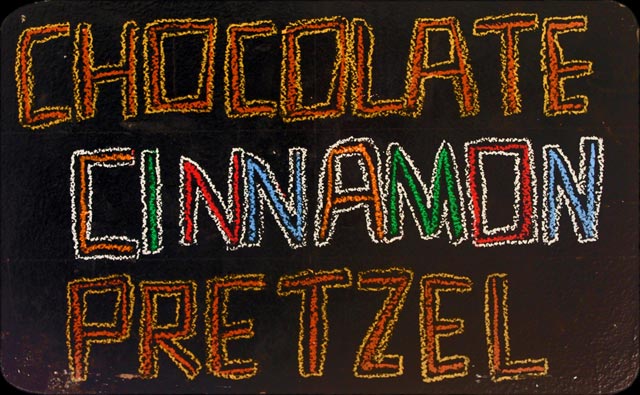 CHOCOLATE
CINNAMON
PRETZEL